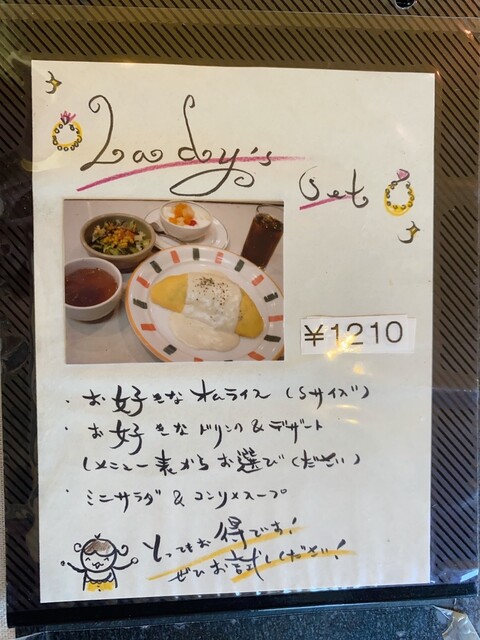 Lady's
Set
¥1210
・お好きなオムライス(Sサイズ)
・お好きなドリンク&デザート
(メニュー表からお選びください)
・ミニサラダ&コンソメスープ
とってもお得です!
ぜひお試しください!